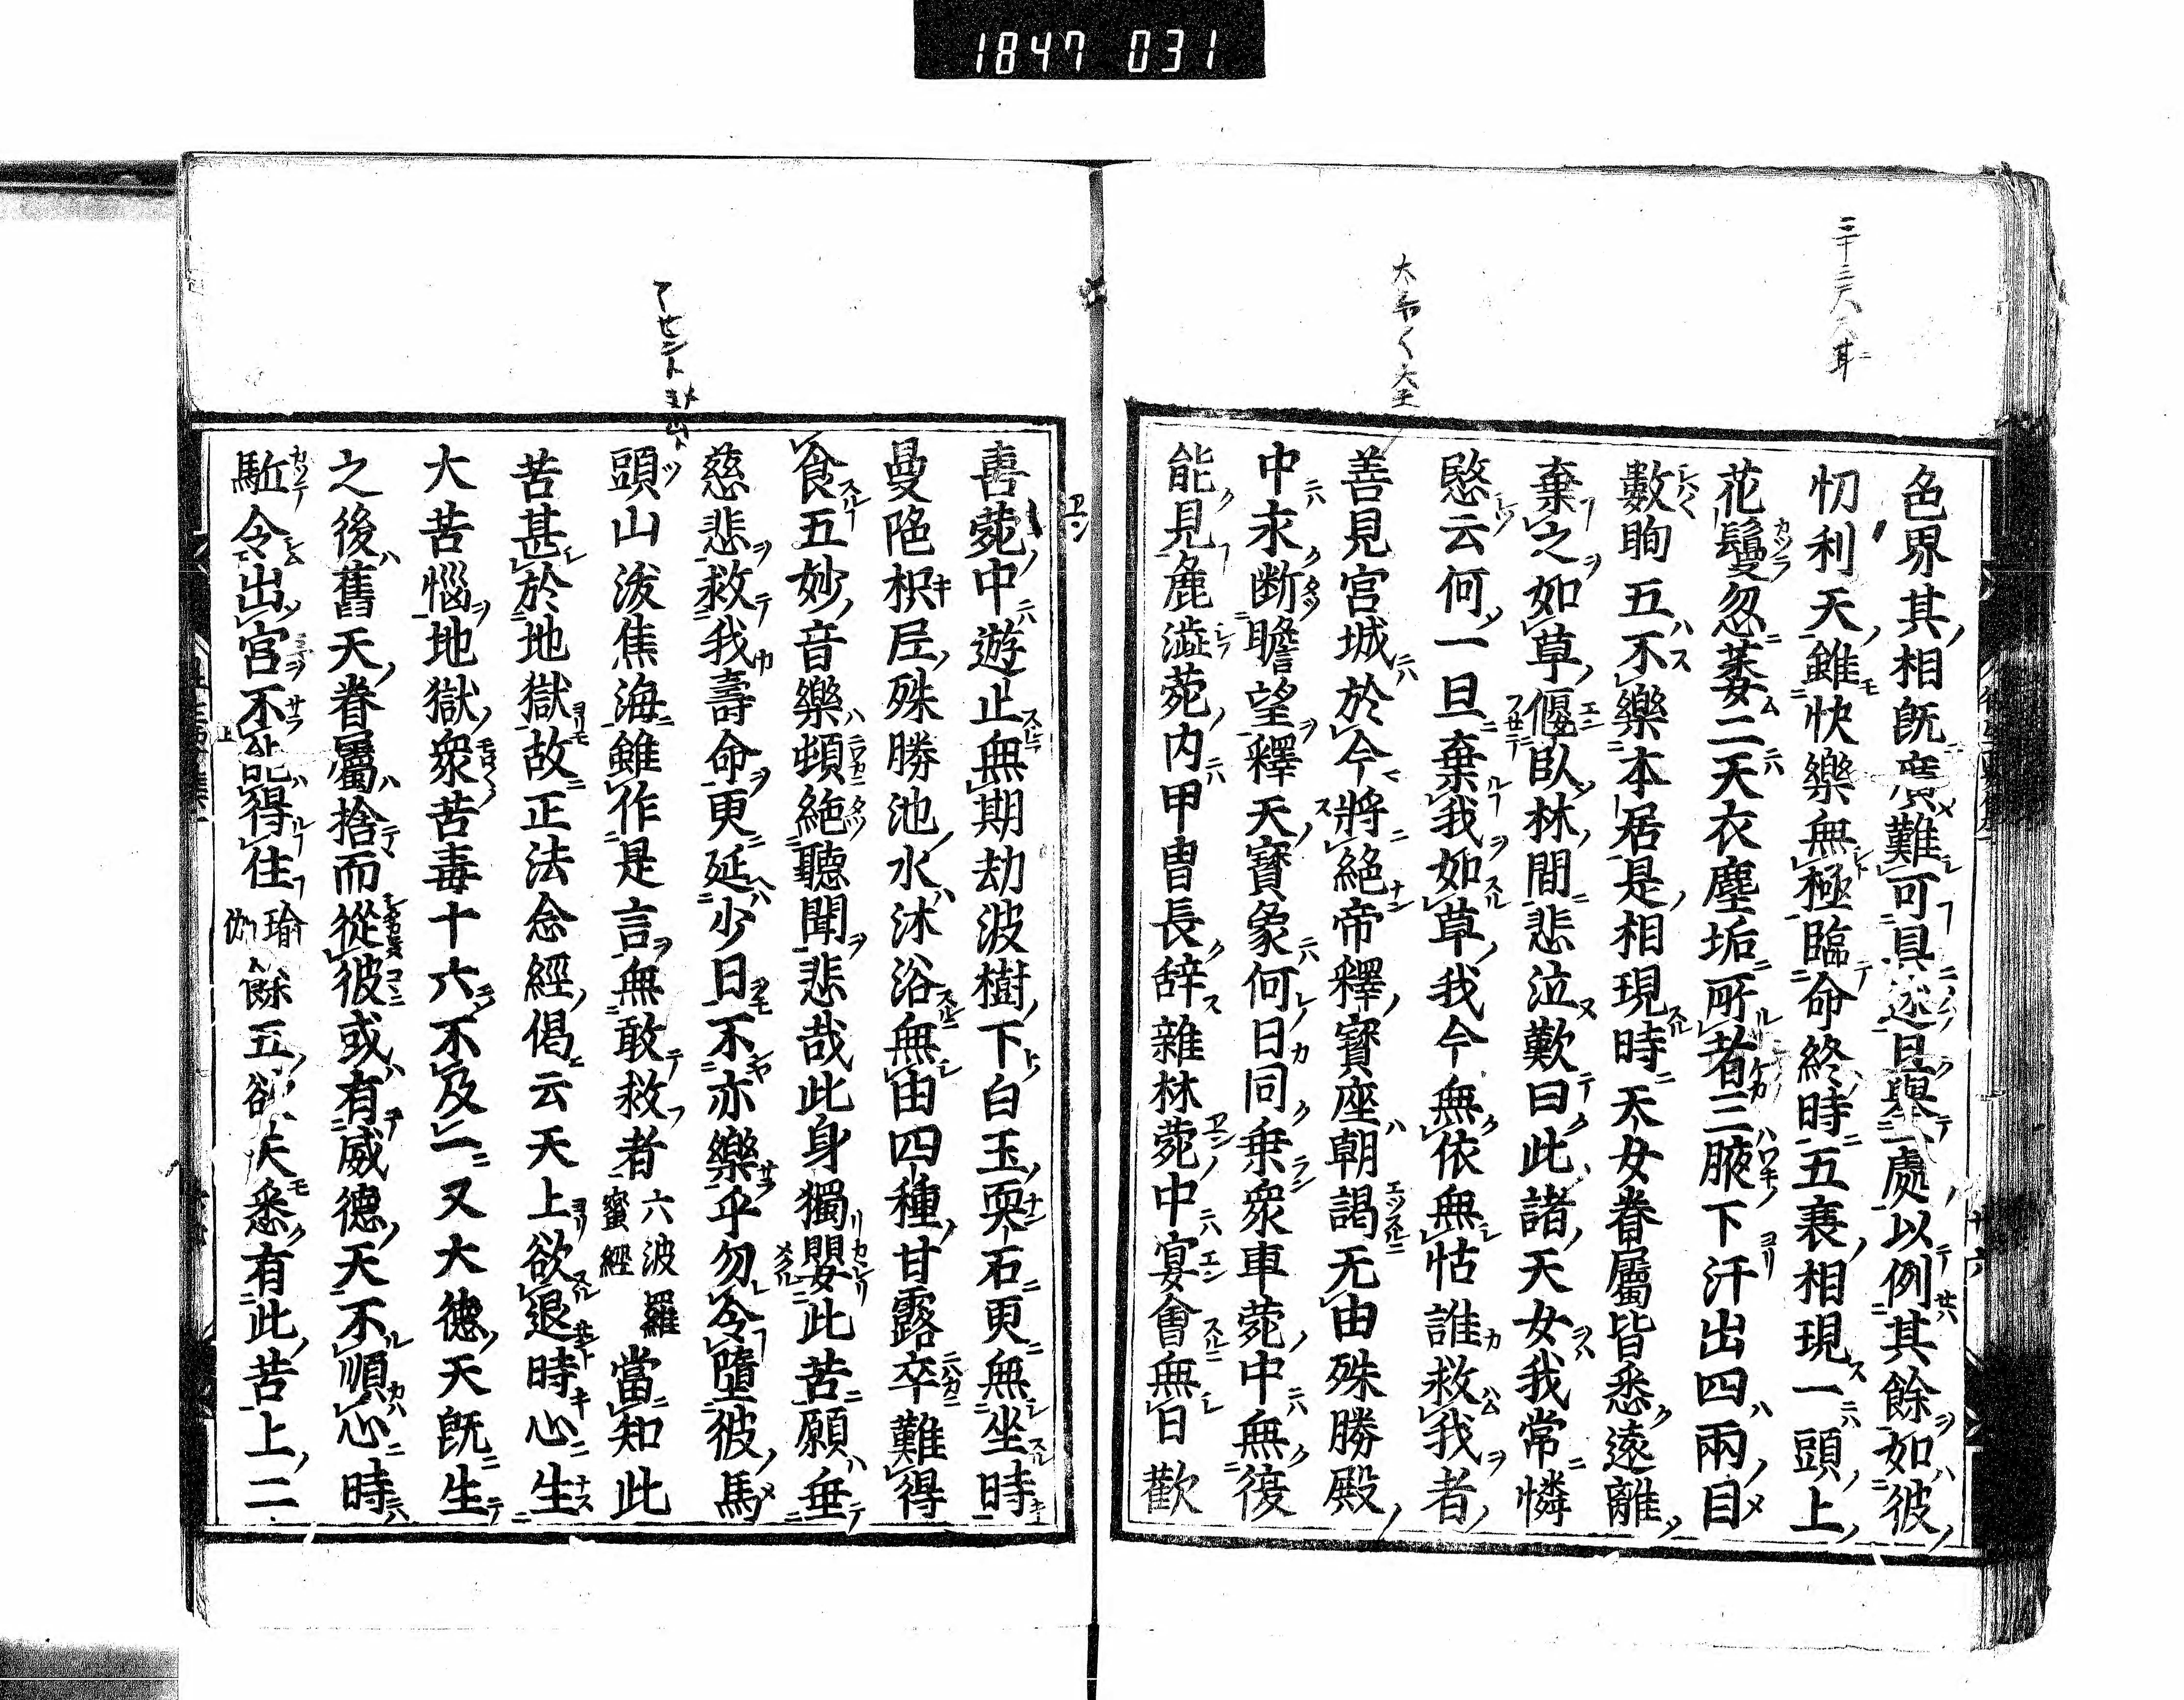 1847 031
色界其相既廣難可具述且舉一處以例其餘如彼
忉利天雖快樂無極臨命終時五衰相現一頭上
花鬘忽萎二天衣塵垢所著三腋下汗出四兩目
數眴五不樂本居是相現時天女眷屬皆悉遠離
棄之如草偃臥林間悲泣歎曰此諸天女我常憐
愍云何一旦棄我如草我今無依無怙誰救我者
善見宮城於今將絕帝釋寶座朝謁无由殊勝殿
中永断瞻望釋天寶象何日同乗衆車菀中無復
能見麁澁菀内甲冑長辞雜林菀中宴會無日歡
喜菀中遊止無期劫波樹下白玉耎石更無坐時
曼陁枳𡱝殊勝池水沐浴無由四種甘露卒難得
食五妙音樂頓絶聽聞悲哉此身獨嬰此苦願垂
慈悲救我壽命更延少日不亦樂乎勿令墮彼馬
頭山沷焦海雖作是言無敢救者六波羅蜜經當知此
苦甚於地獄故正法念經偈云天上欲退時心生
大苦惱地獄衆苦毒十六不及一又大德天既生
之後舊天眷屬捨而從彼或有威德天不順心時
駈令出宮不能得住瑜伽餘五欲天悉有此苦上二